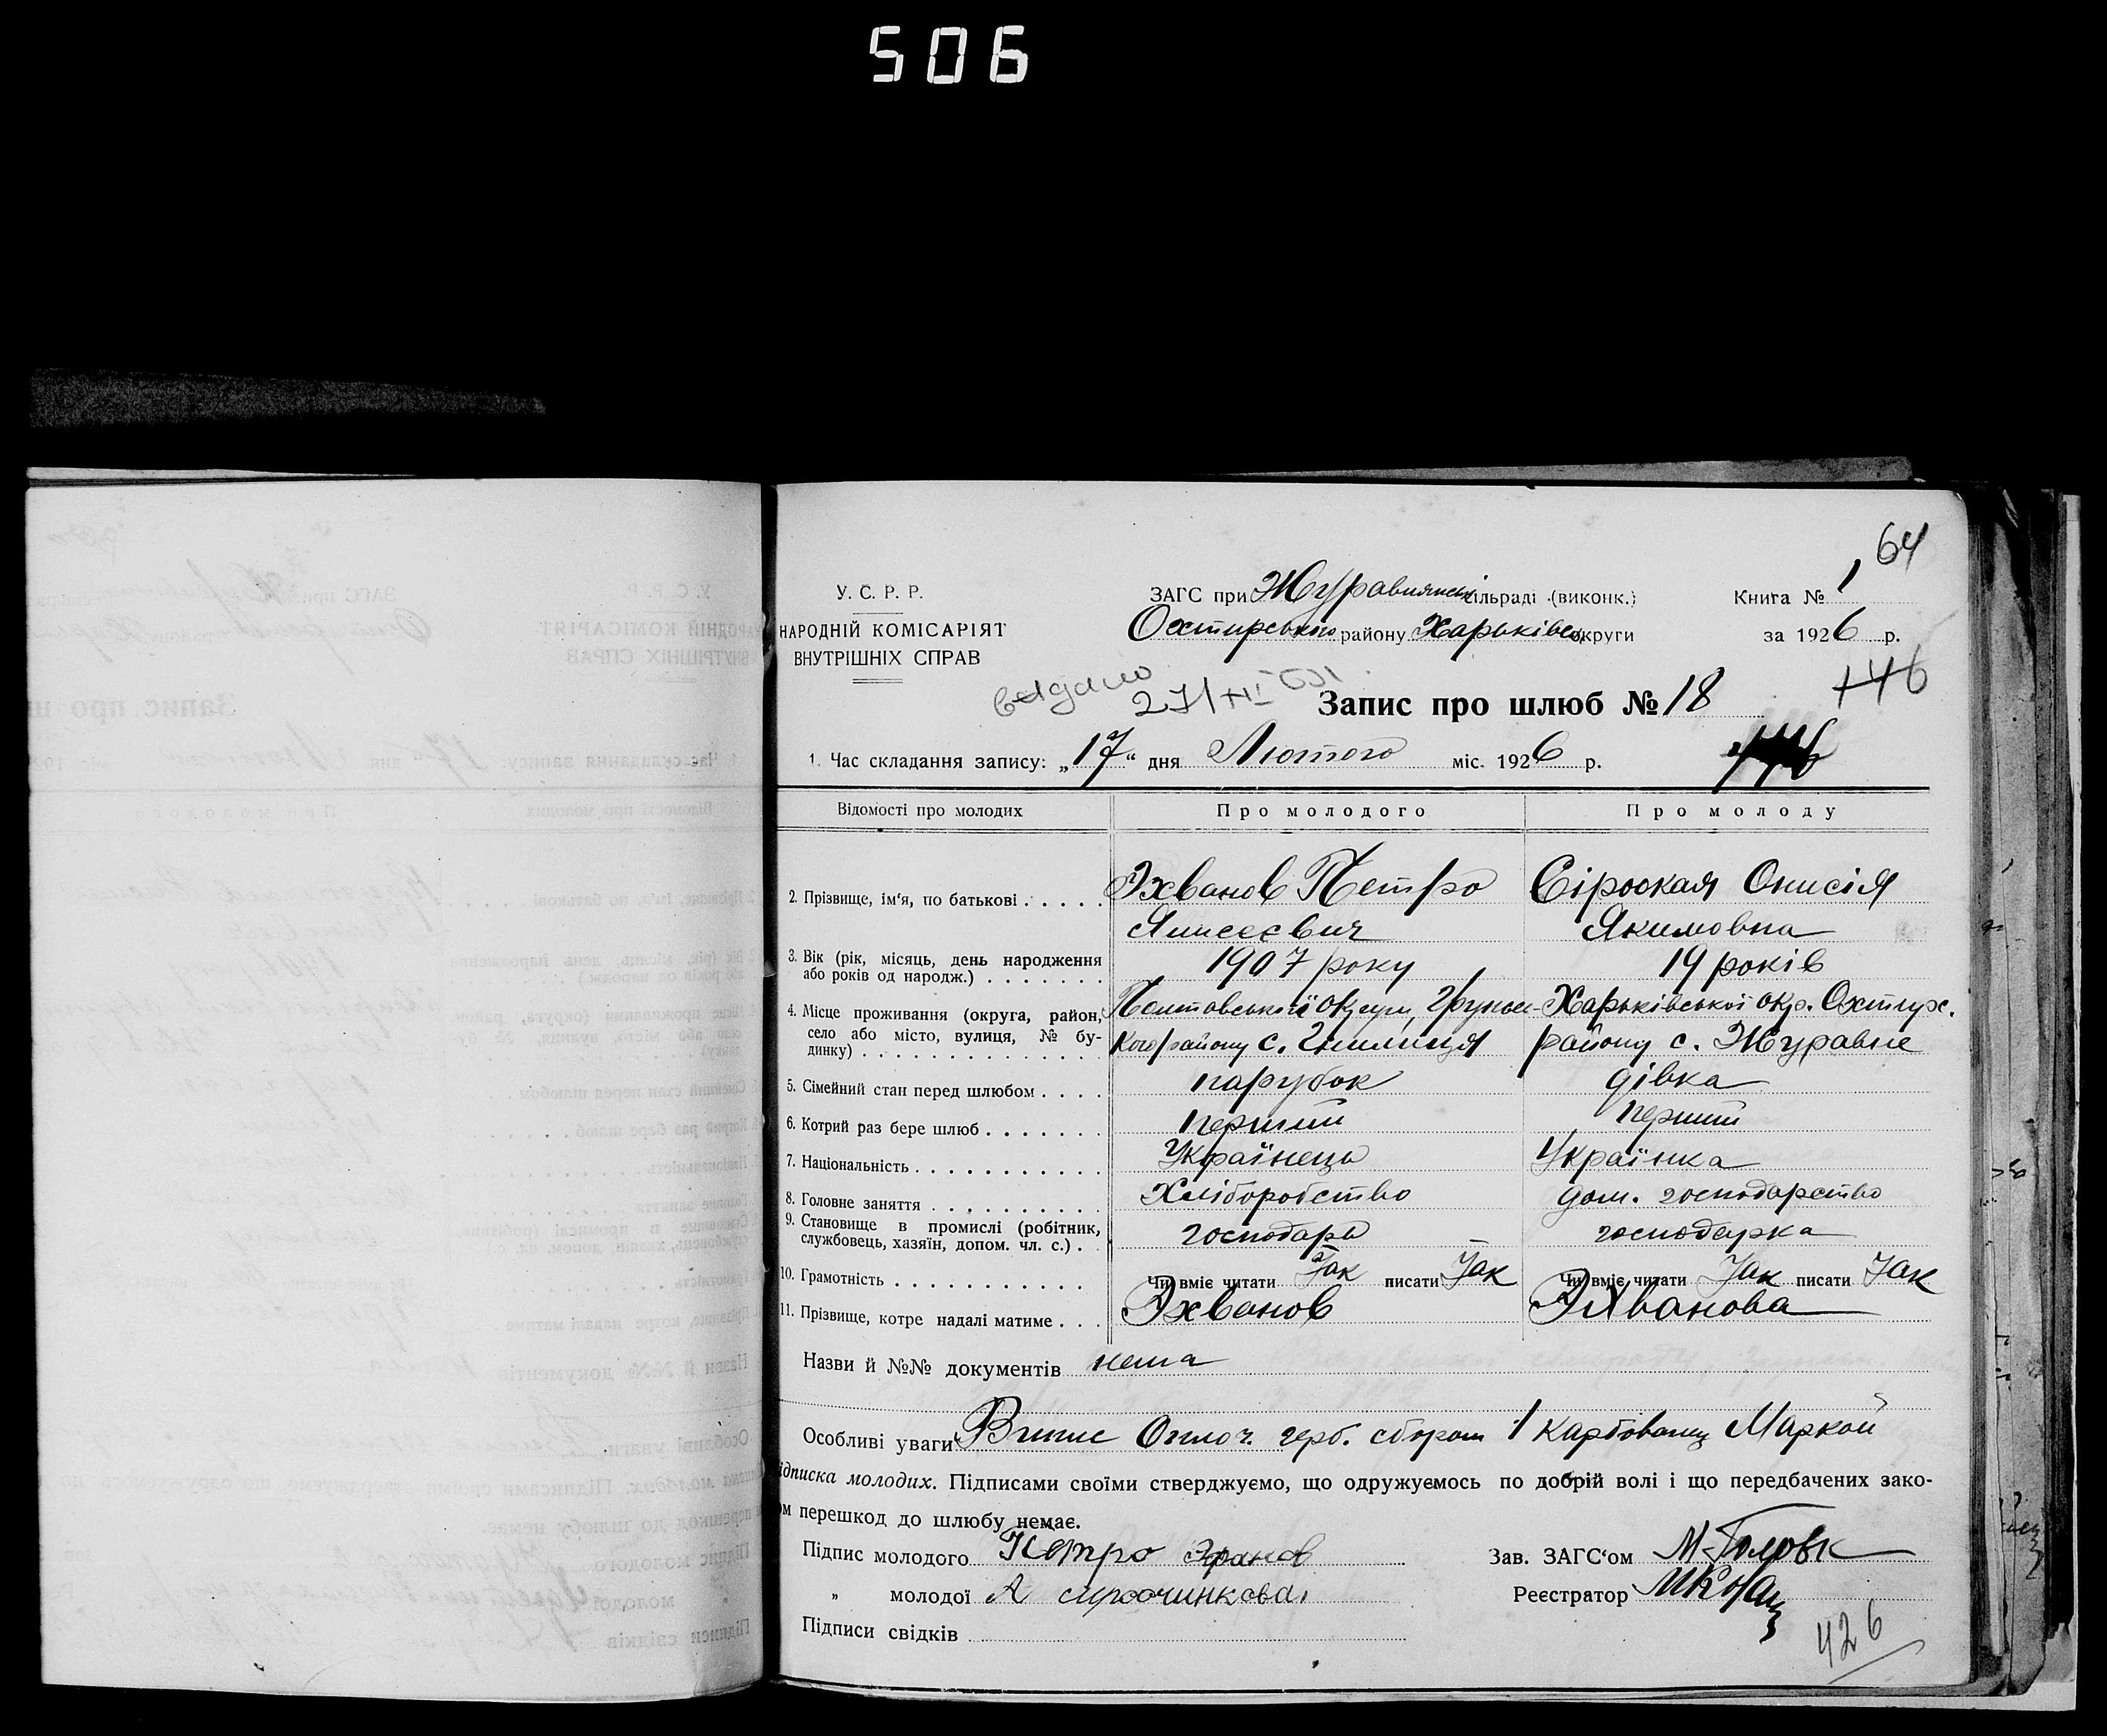 506
64
У. С. Р. Р.
НАРОДНІЙ КОМІСАРІЯТ
ВНУТРІШНІХ СПРАВ
ЗАГС при Журавнянск сільраді (виконк.)
Охтирського району Харьківськ округи
Книга № 1
за 1926 р.
видано 27/XI
Запис про шлюб № 18
146
1. Час складання запису: „17" дня Лютого міс. 1926 р.
Відомості про молодих Про молодого Про молоду
2. Прізвище, ім'я, по батькові Эхванов Петро Сіроокая Онисія
Якимовна
3. Вік (рік, місяць, день народження або років од народж.) 1907 року 19 років
4. Місце проживання (округа, район, Полтавської округи, Грунсь- Харьківської окр. Охтирс.
село або місто, вулиця, № бу- кого району с. Гнилиця району с. Журавне
динку)
5. Сімейний стан перед шлюбом парубок дівка
6. Котрий раз бере шлюб перший перший
7. Національність Українець Українка
8. Головне заняття Хліборобство дом. господарство
9. Становище в промислі (робітник,
службовець, хазяїн, допом. чл. с.) господарь господарка
10. Грамотність Чи вміє читати Так писати Так Чи вміє читати Так писати Так
11. Прізвище, котре надалі матиме Эхванов Эхванова
Назви й №№ документів нема
Особливі уваги Випис Оплоч. герб. сбором 1 карбованц Маркой
ідписка молодих. Підписами своїми стверджуємо, що одружуємось по добрій волі і що передбачених зако-
ом перешкод до шлюбу немає.
Підпис молодого Петро
Зав. ЗАГС'ом М. Головк
„ молодої А
Реєстратор
Підписи свідків
426